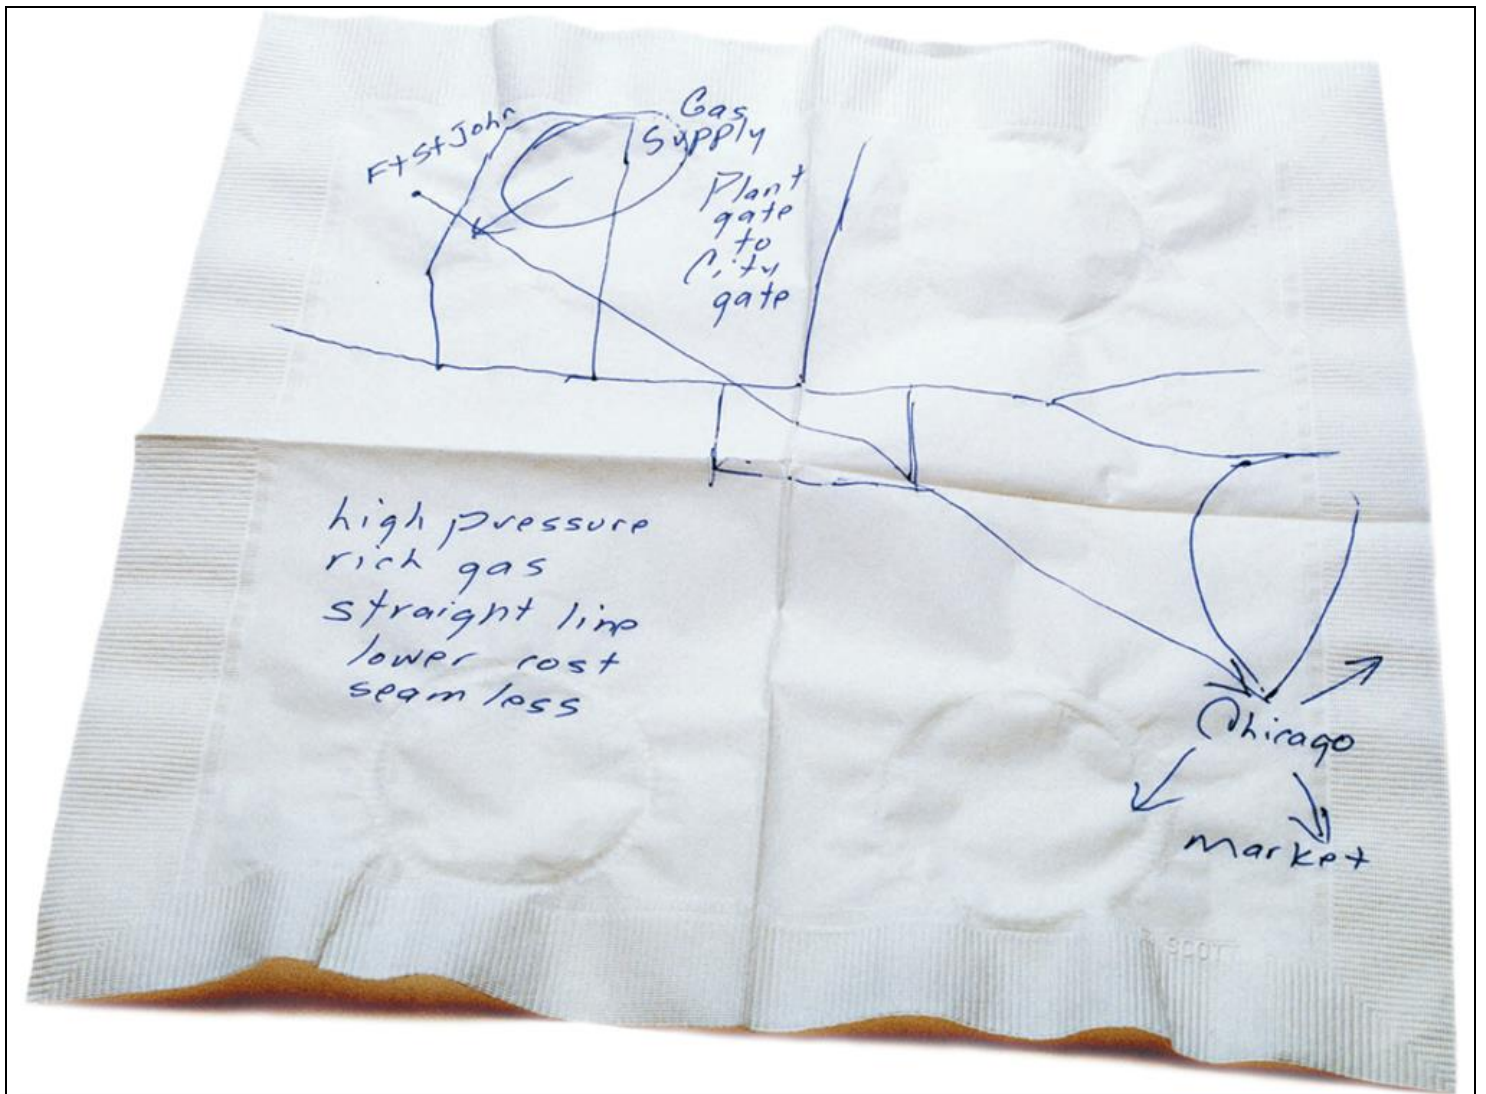 Ft St John
Gas
Supply
Plant
gate
to
City
gate
high pressure
rich gas
straight line
lower cost
seamless
Chicago
market
SCOTT